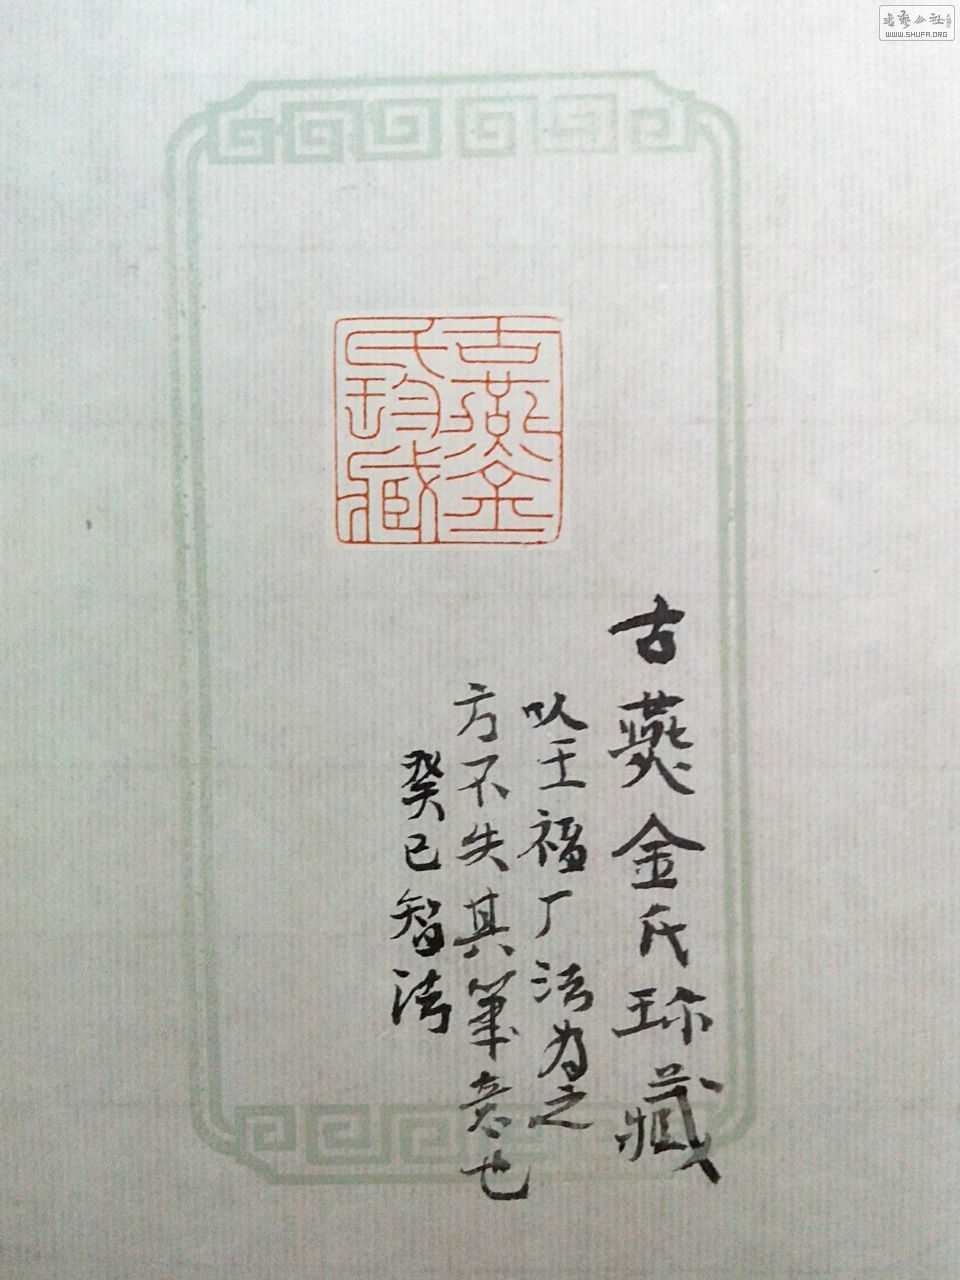 書藝公社
WWW.SHUFA.ORG
古燕金
氏珍藏
古燕金氏珍藏
以王福厂法为之
方不失其筆意也
癸巳智法